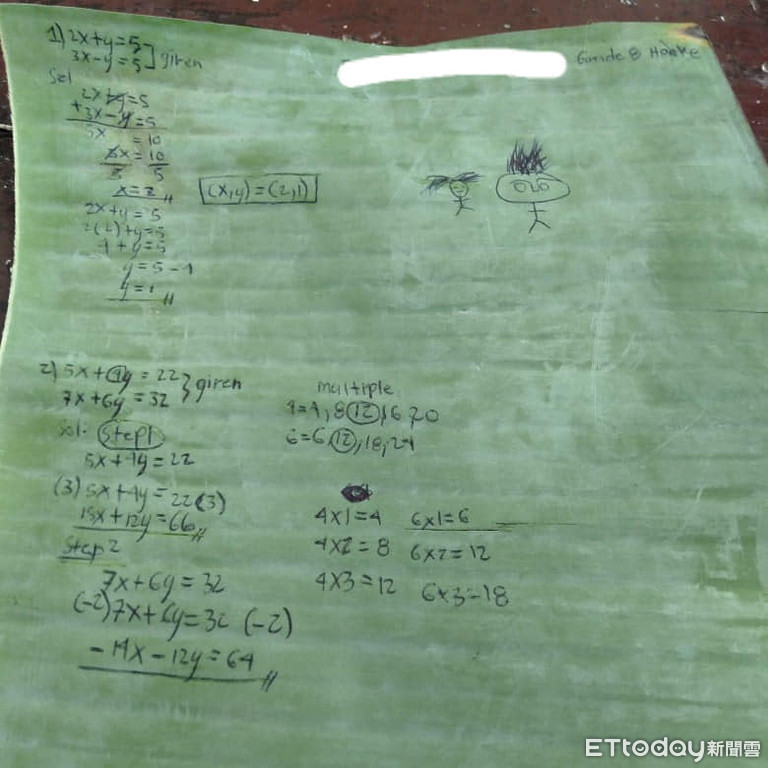 1) 2x+y=5
3x-y=5 ] given
Grade 8 Hooke
Sol
2x+y=5
+3x-y=5
5x = 10
5x = 10
5 5
x=2 //
(x,y)=(2,1)
2x+y=5
2(2)+y=5
4+y=5
y=5-4
y=1 //
2) 5x+4y=22
7x+6y=32 } given
multiple
4=4,8,12,16,20
6=6,12,18,24
Sol: Step1
5x+4y=22
(3) 5x+4y=22(3)
15x+12y=66 //
4x1=4 6x1=6
4x2=8 6x2=12
4x3=12 6x3=18
Step2
7x+6y=32
(-2)7x+6y=32 (-2)
-14x-12y=64 //
ETtoday新聞雲